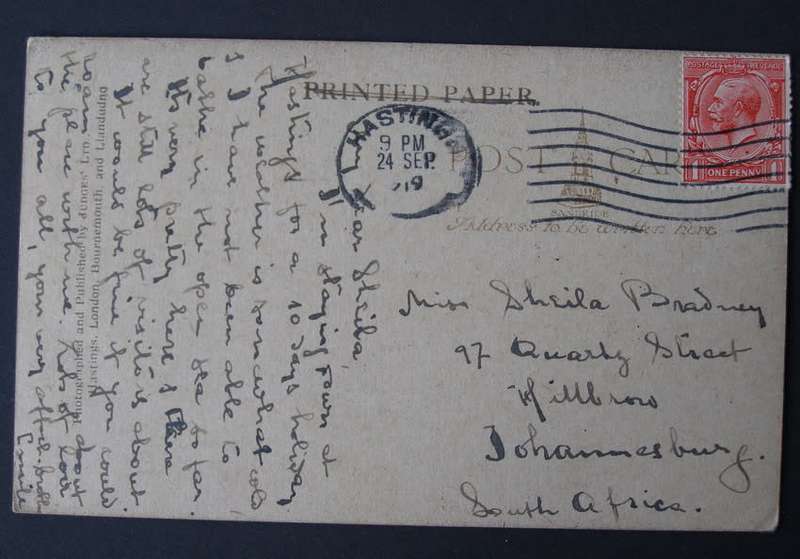 PRINTED PAPER
HASTINGS
9 PM
24 SEP
19
POSTAGE REVENUE
1 ONE PENNY 1
POST CARD
Address to be written here
Miss Sheila Bradney
97 Quartz Street
Hillbrow
Johannesburg.
South Africa.
My Dear Sheila,
I'm staying down at
Hastings for a 10 days holiday
the weather is somewhat cold
& I have not been able to
bathe in the open sea so far.
It's very pretty here & there
are still lots of visitors about
It would be fine if you could
roam about
the place with me. Lots of love
to you all, your very
Photographed and Published by JUDGES' Ltd.,
Hastings, London, Bournemouth, and Llandudno